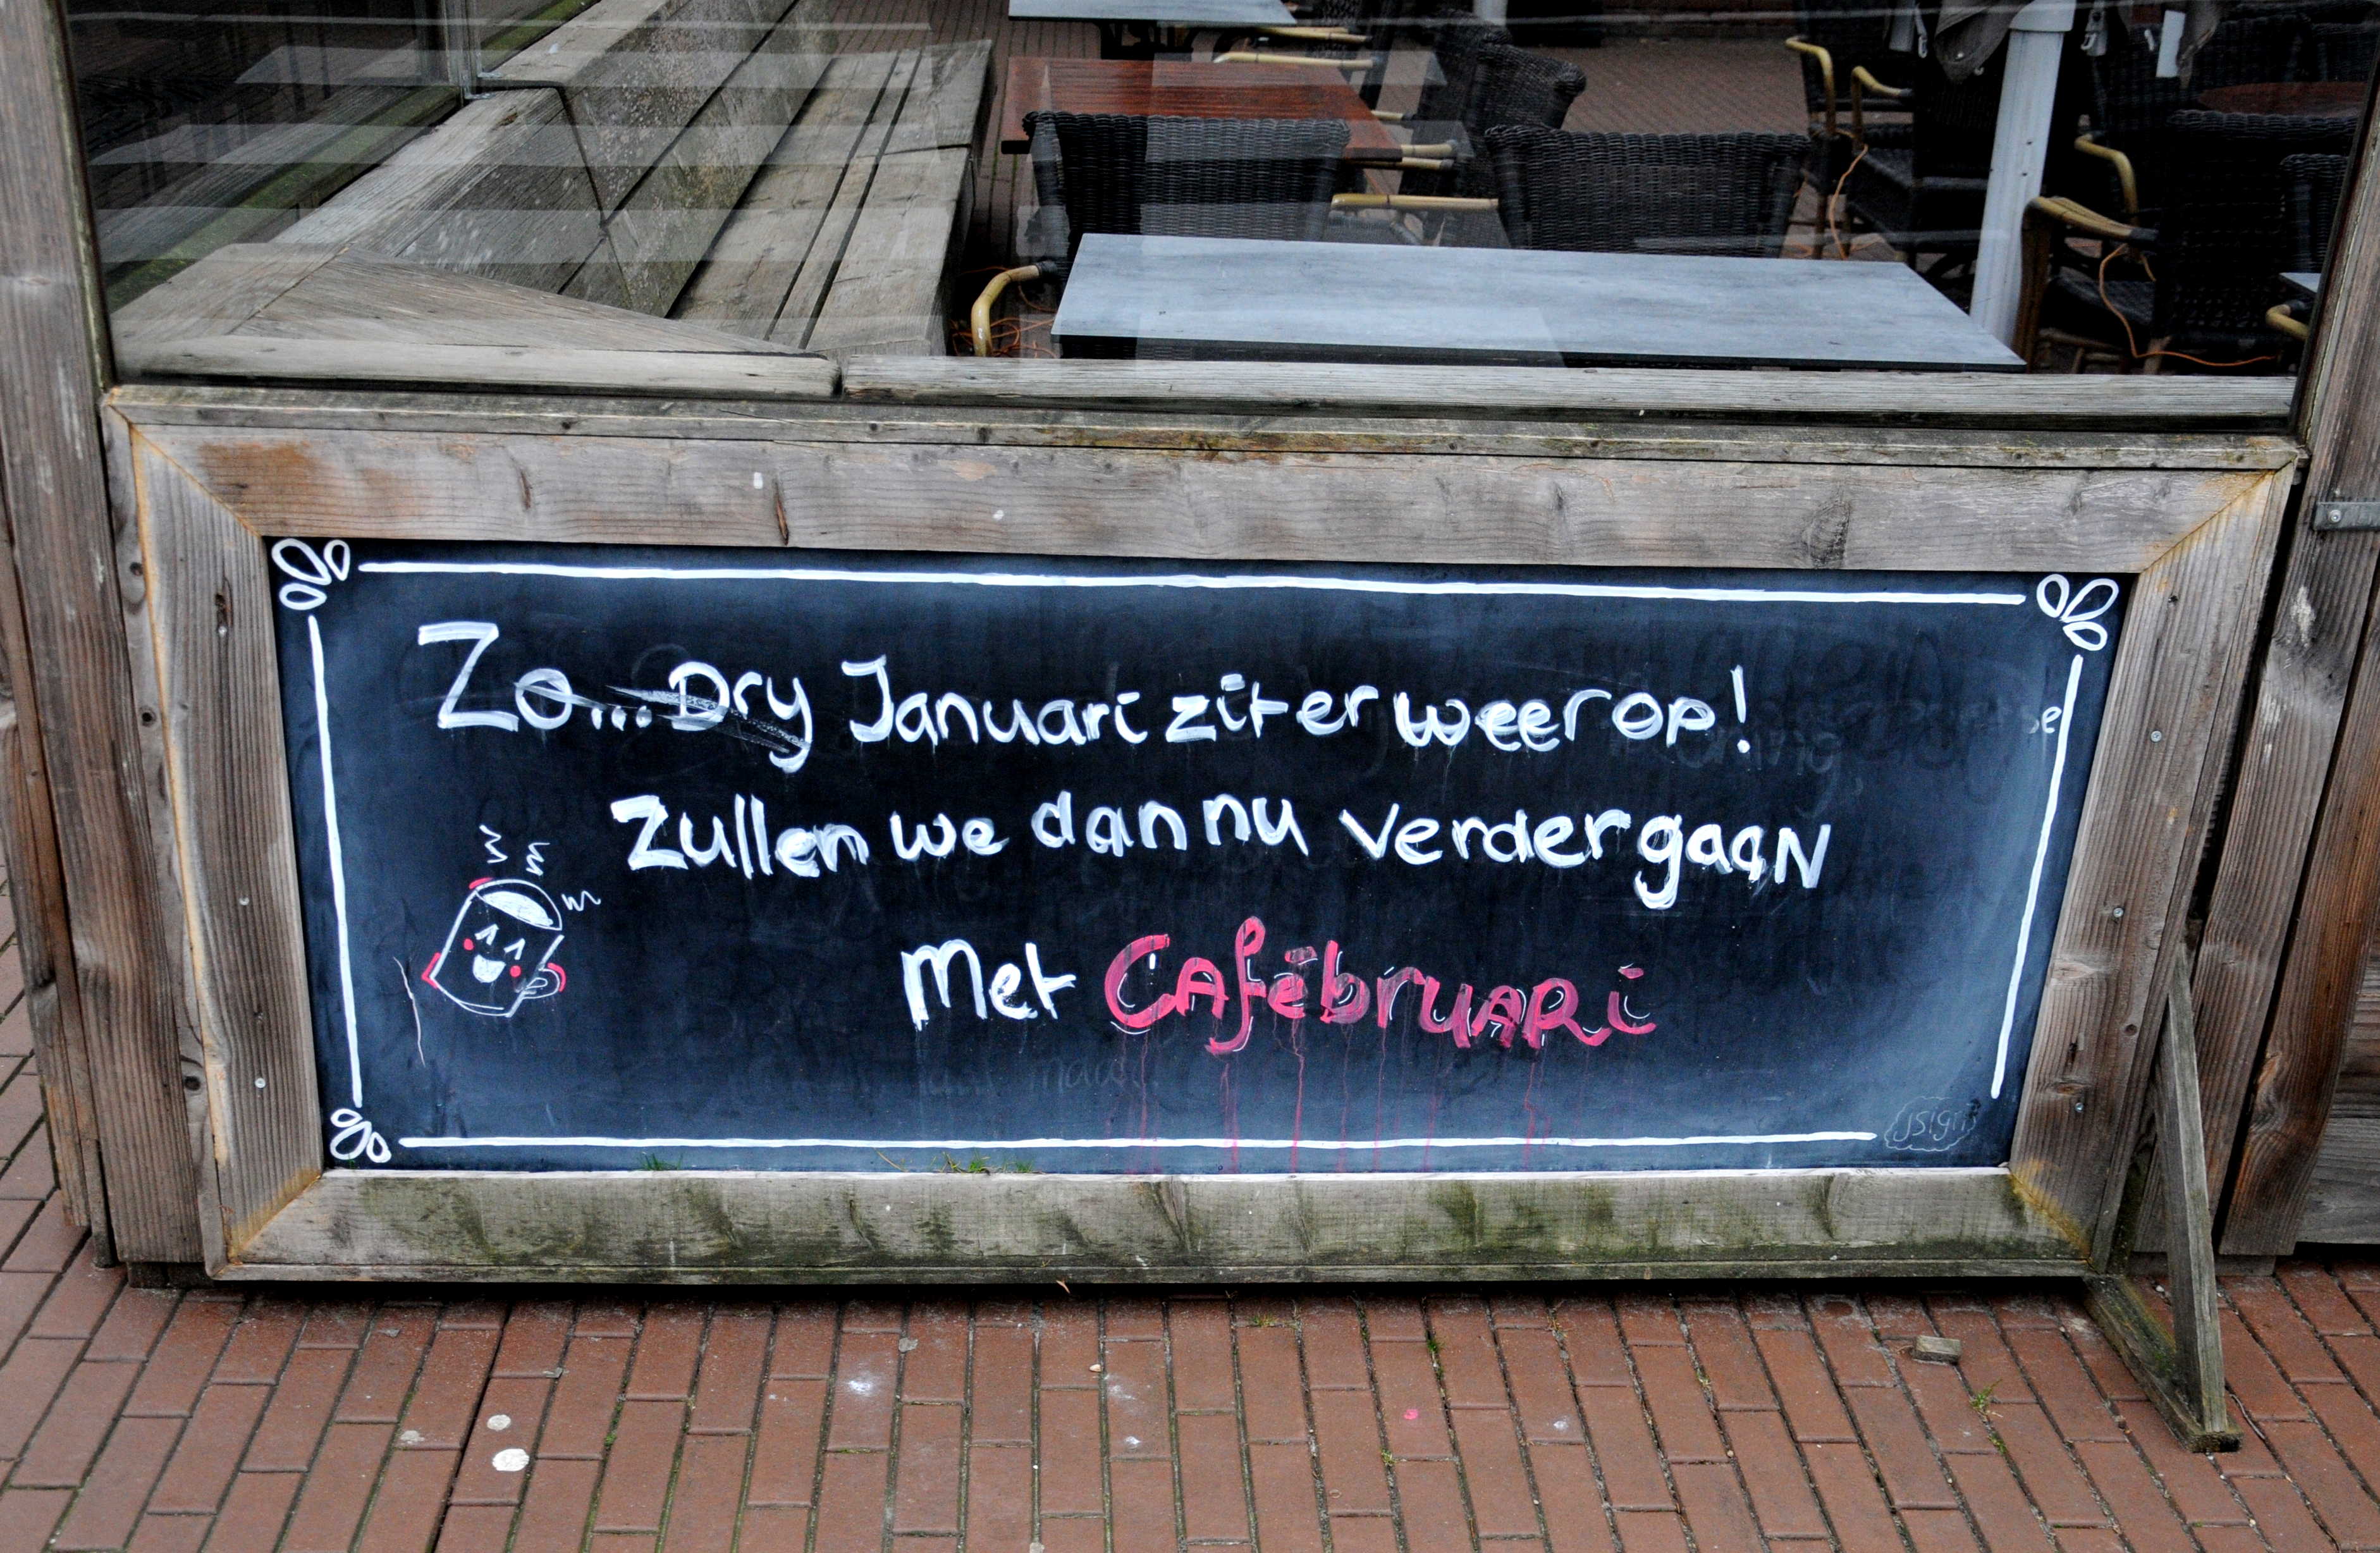 Zo... Dry Januari zit er weer op!
Zullen we dan nu verder gaan
Met Cafébruari
jsign